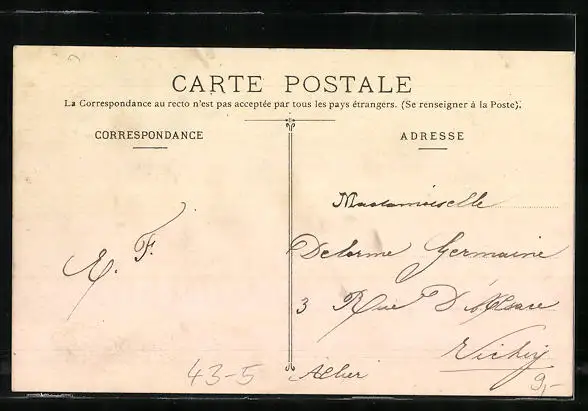 CARTE POSTALE
La Correspondance au recto n'est pas acceptée par tous les pays étrangers. (Se renseigner à la Poste).
CORRESPONDANCE
E. F.
43-5
ADRESSE
Mademoiselle
Delorme Germaine
3 Rue D'Alsace
Vichy
Allier
9,-